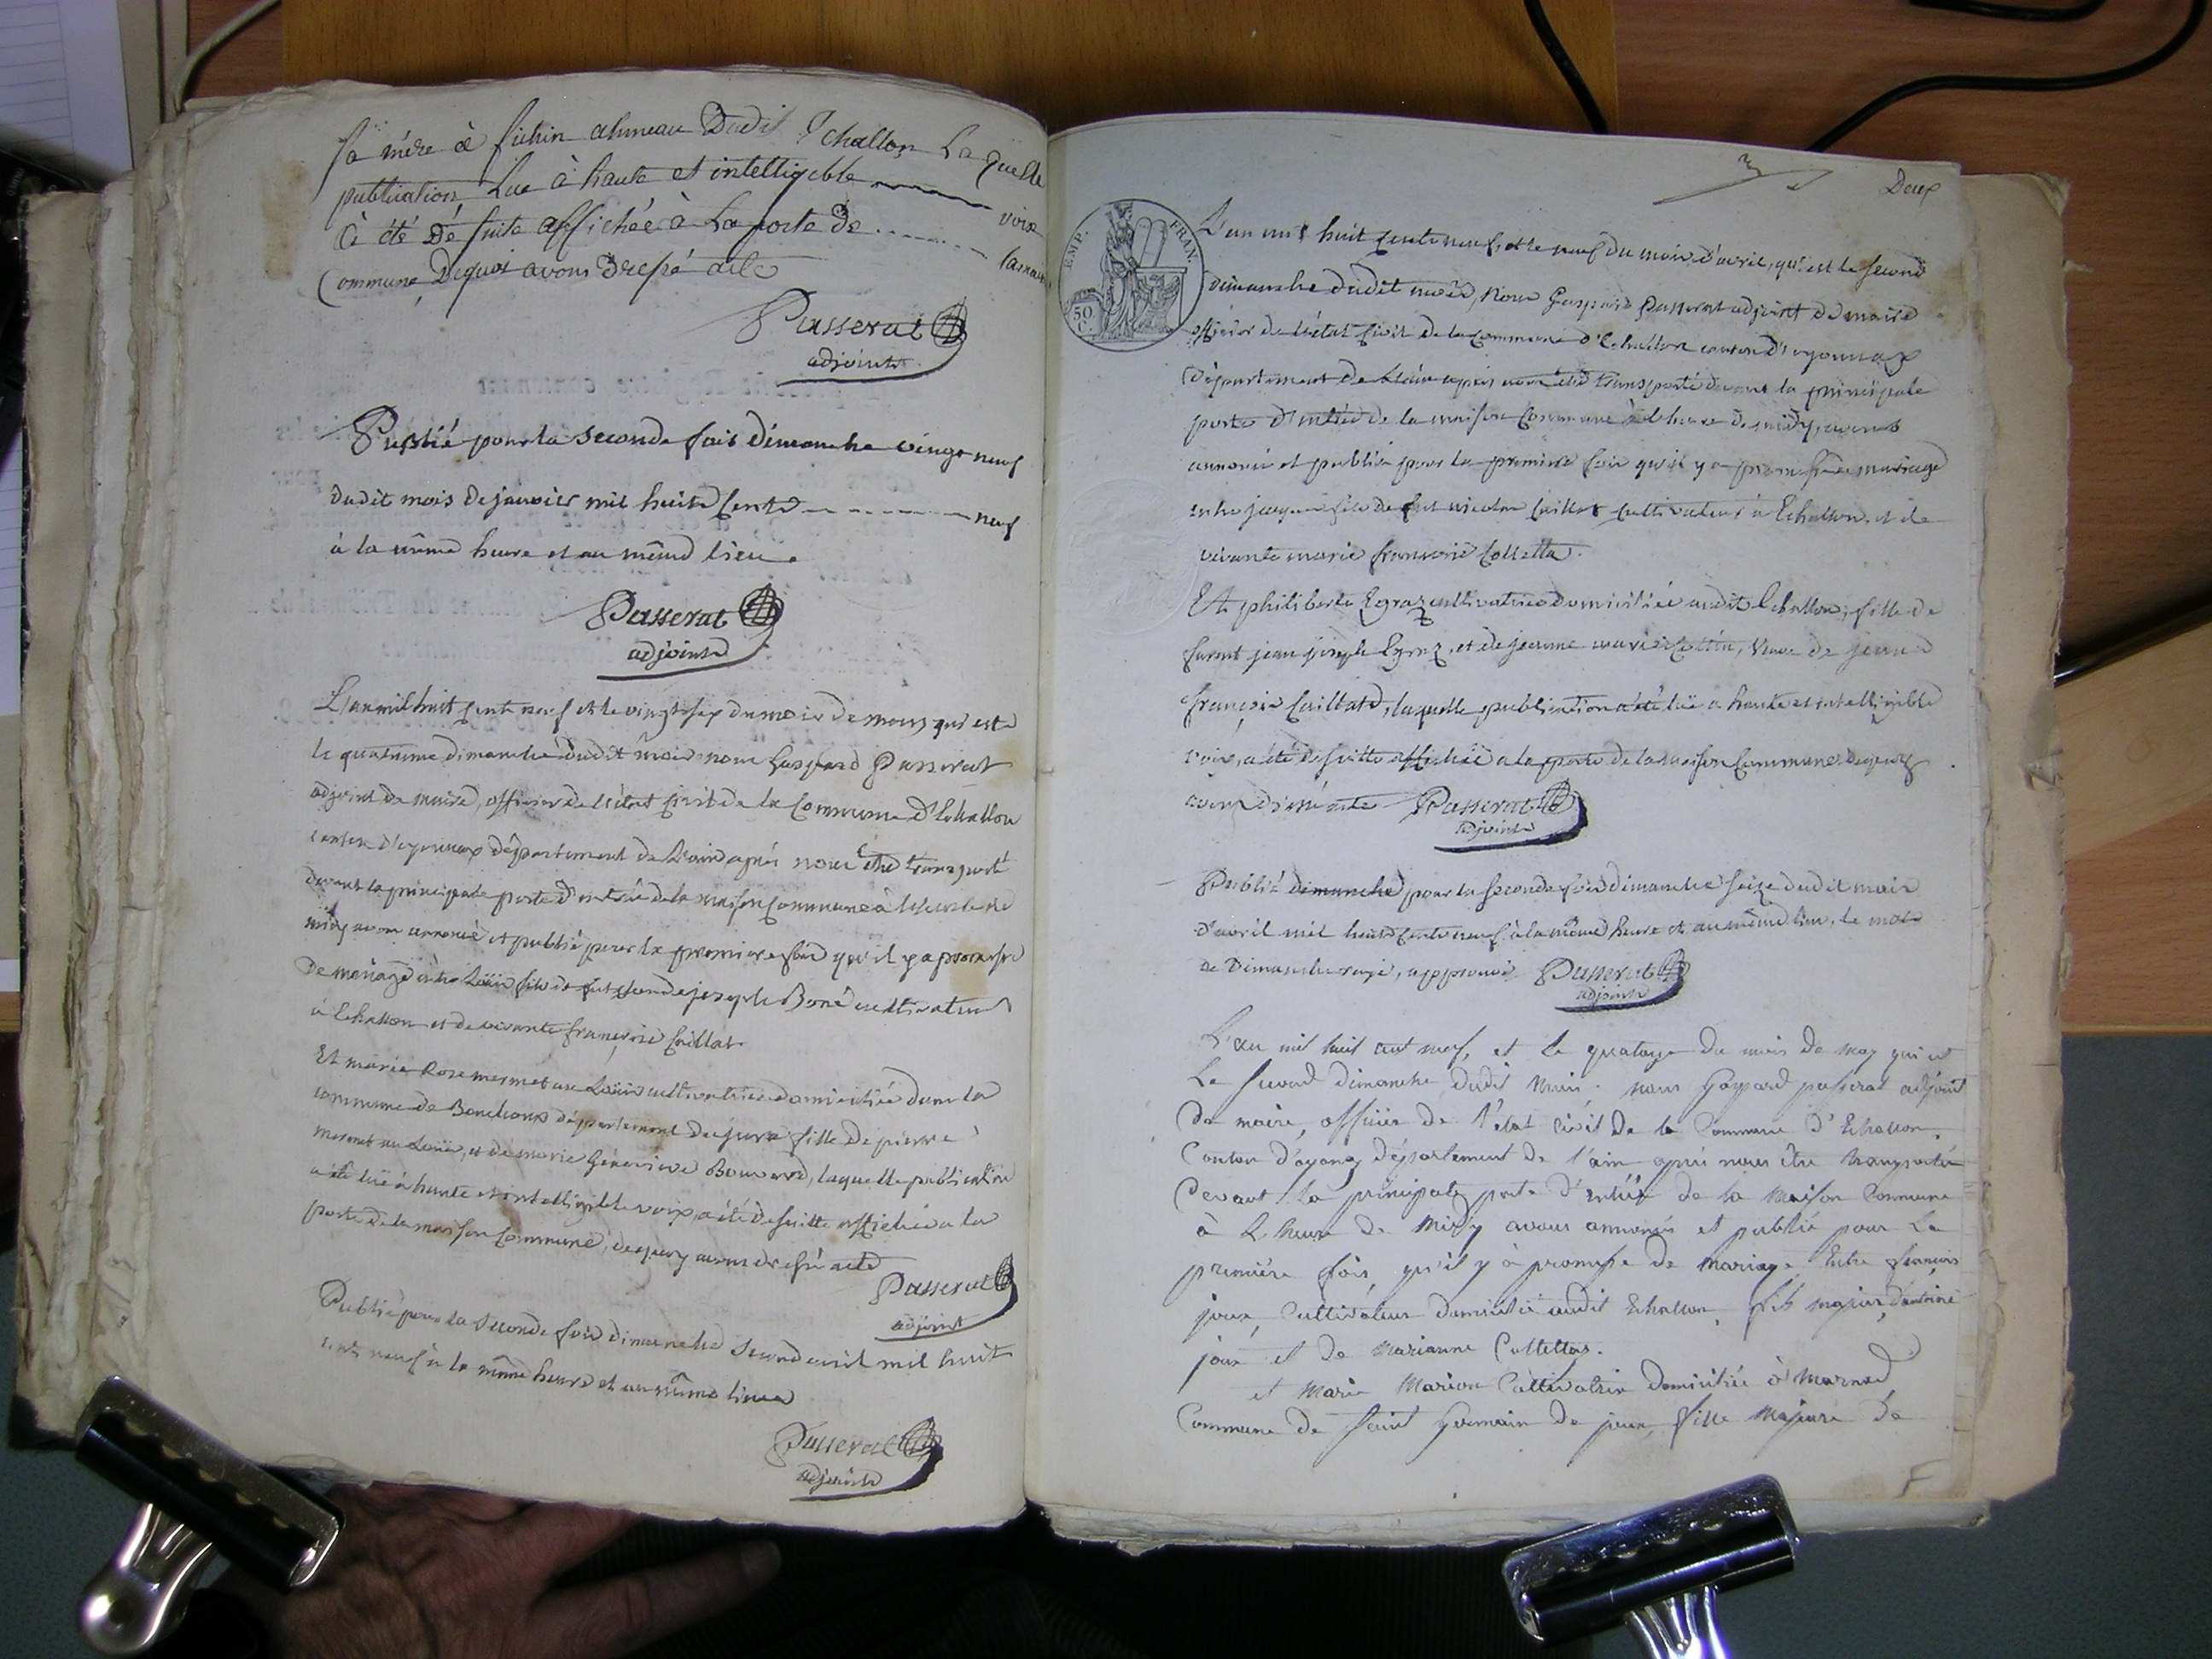 Sa mère à fichin ahmeau Dudit Echallon Laquelle
publication, Lue à haute et intelligible voix
à été Dé suite affichée à La porte de la maison
Commune, Dequoi avons Dressé acte
Passerat
adjoint
Publié pour la seconde fois dimanche vingt neuf
dudit mois de janvier mil huit Cent neuf
à la même heure et au même lieu.
Passerat
adjoint
L'an mil huit Cent neuf et le vingt six du mois de mars, qui est
le quatrième dimanche dudit mois nous Gaspard Passerat
adjoint de maire, officier de l'état Civil de la Commune d'Echallon
canton d'oyonnax département de L'ain après nous être transporté
devant la principale porte d'entrée de la maison Commune à l'heure de
midy avons annoncé et publié pour la première fois qu'il y a promesse
De mariage entre Loüis fils de fut Claude joseph Boné cultivateur
à Echallon et de vivante françoise Caillat.
Et marie Rose mermet au Loüis cultivatrice domiciliée dans la
commune de Bouchoux département du jura fille de pierre
mermet au Loüis, et de marie Génévieve Bouvard, laquelle publication
a été lüe à haute et intelligible voix, a été de suitte affichée a la
porte de la maison Commune, dequoy avons dressé acte
Passerat
adjoint
Publié pour la seconde fois dimanche second avril mil huit
cent neuf à la même heure et au même lieu
Passerat
adjoint
Deux
EMP. FRAN.
50 C.
L'an mil huit Cent neuf, et le neuf du mois d'avril, qui est le second
dimanche dudit mois, Nous Gaspard Passerat adjoint de maire
officier de l'état Civil de la Commune d'Echallon canton d'oyonnax
Département de L'ain après nous être transporté devant la principale
porte d'entrée de la maison Commune à l'heure de midy, avons
annoncé et publié pour la première fois qu'il y a promesse de mariage
entre jacques fils de fut nicolas Caillat cultivateur à Echallon, et de
vivante marie françoise Colletta.
Et philiberte Egraz cultivatrice domiciliée audit Echallon, fille de
furent jean joseph Egraz, et de jeanne marie Cottin, veuve de jean
françois Caillat, laquelle publication a été lüe a haute et intelligible
voix, a été de suitte affichée a la porte de la maison Commune, dequoy
avons dressé acte Passerat
adjoint
Publié dimanche pour la seconde fois dimanche seize dudit mois
d'avril mil huit Cent neuf, à la même heure et au même lieu, le mot
de Dimanche rayé, approuvé. Passerat
adjoint
L'an mil huit cent neuf, et le quatorze du mois de may qui est
Le second dimanche dudit mois. nous Gaspard passerat adjoint
De maire, officier de l'état Civil de la Commune d'Echallon,
Canton d'oyonax département de l'ain après nous être transporté
Devant la principale porte d'entrée de la maison Commune
à L'heure de midy avons annoncés et publié pour La
première fois, qu'il y à promesse de mariage Entre françois
joux, Cultivateur domicilié audit Echallon, fils majeur d'antoine
joux et de marianne Collettaz.
et marie Marion Cultivatrice domiciliée à Marnod
Commune de Saint Germain de joux, fille majeure de